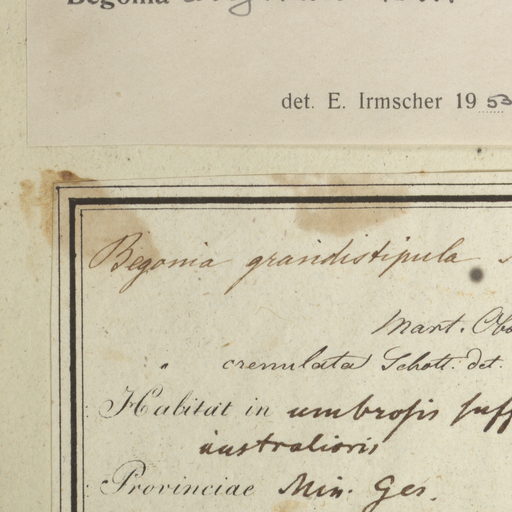 Begonia
det. E. Irmscher 1953
Begonia grandistipula
Mart. Obs
" crenulata Schott. det.
Habitat in umbrosis suff
australioris
Provinciae Min. Ger.